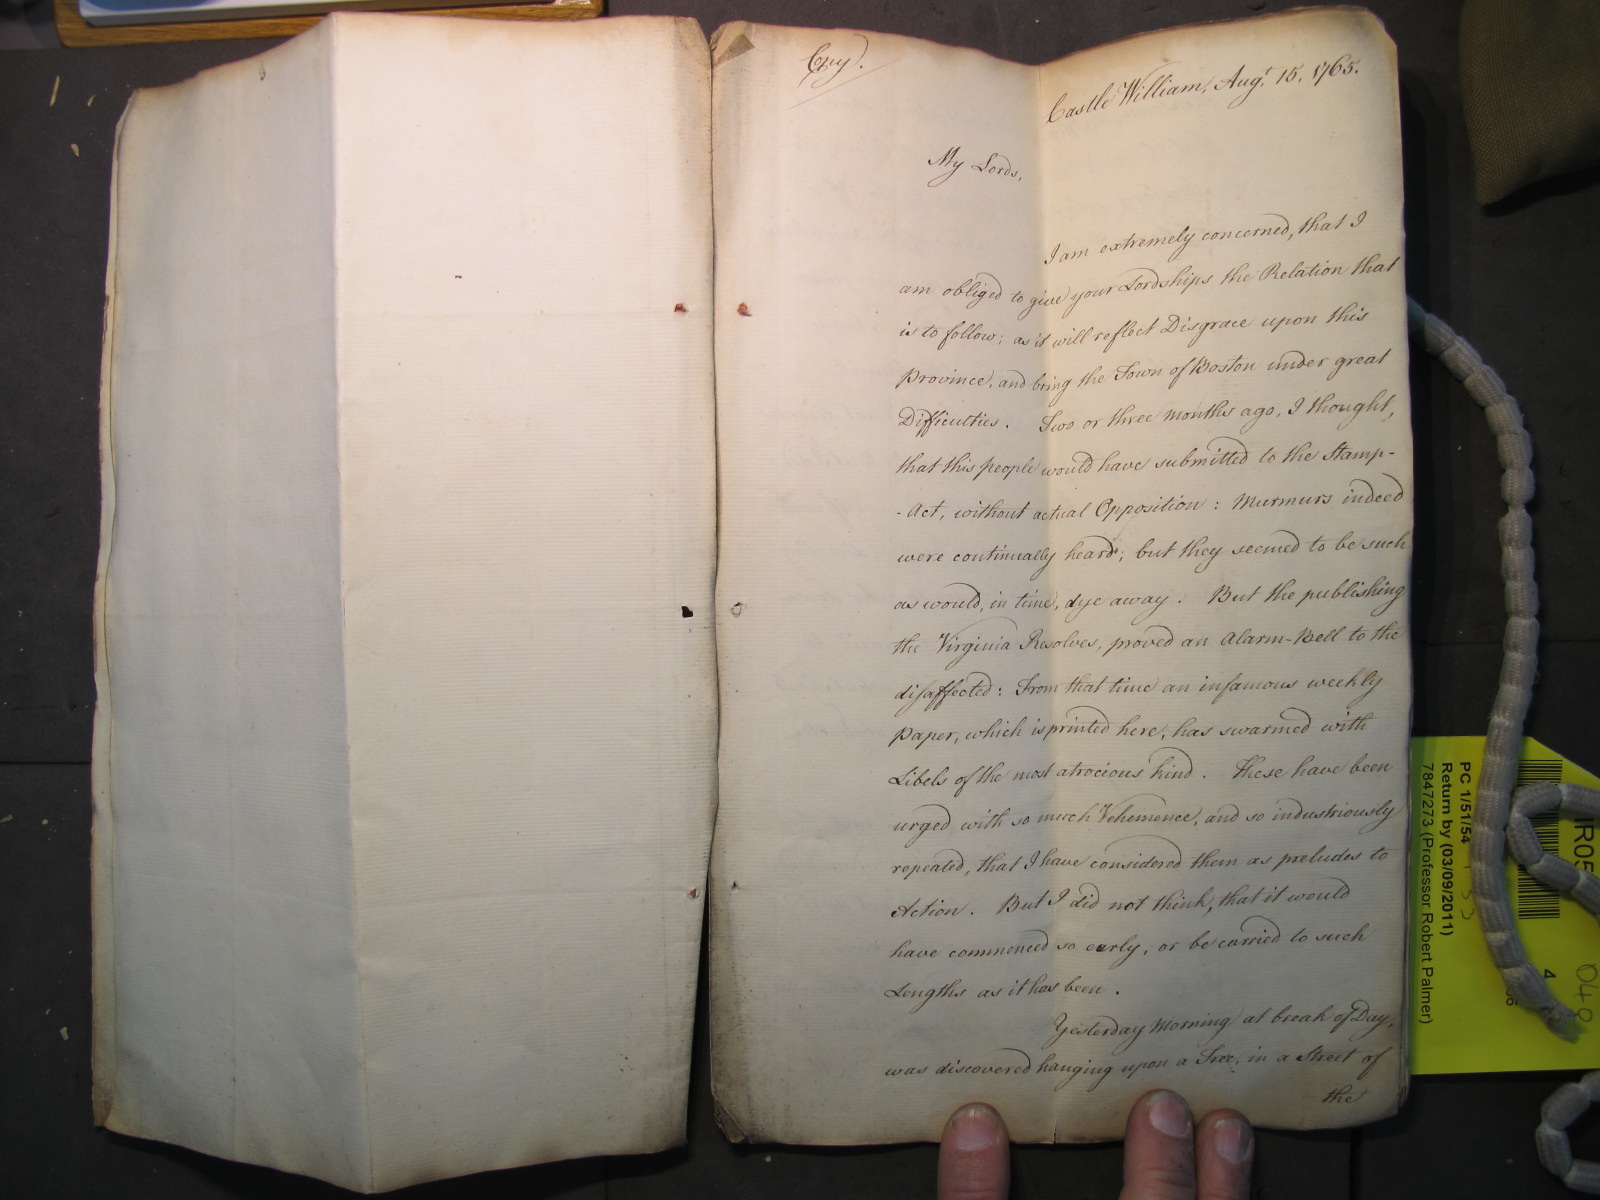 Copy.
Castle William, Augt. 15. 1765.
My Lords,
I am extremely concerned, that I
am obliged to give your Lordships the Relation that
is to follow; as it will reflect Disgrace upon this
Province, and bring the Town of Boston under great
Difficulties. Two or three months ago, I thought,
that this people would have submitted to the Stamp-
-Act, without actual Opposition: Murmurs indeed
were continually heard; but they seemed to be such
as would, in time, dye away. But the publishing
the Virginia Resolves, proved an Alarm-Bell to the
disaffected: From that time an infamous weekly
Paper, which is printed here, has swarmed with
Libels of the most atrocious kind. These have been
urged with so much Vehemence, and so industriously
repeated, that I have considered them as preludes to
Action. But I did not think, that it would
have commenced so early, or be carried to such
Lengths as it has been.
Yesterday Morning at break of Day,
was discovered hanging upon a Tree, in a Street of
the
PC 1/51/54
Return by (03/09/2011)
7847273 (Professor Robert Palmer)
IR05
4
040